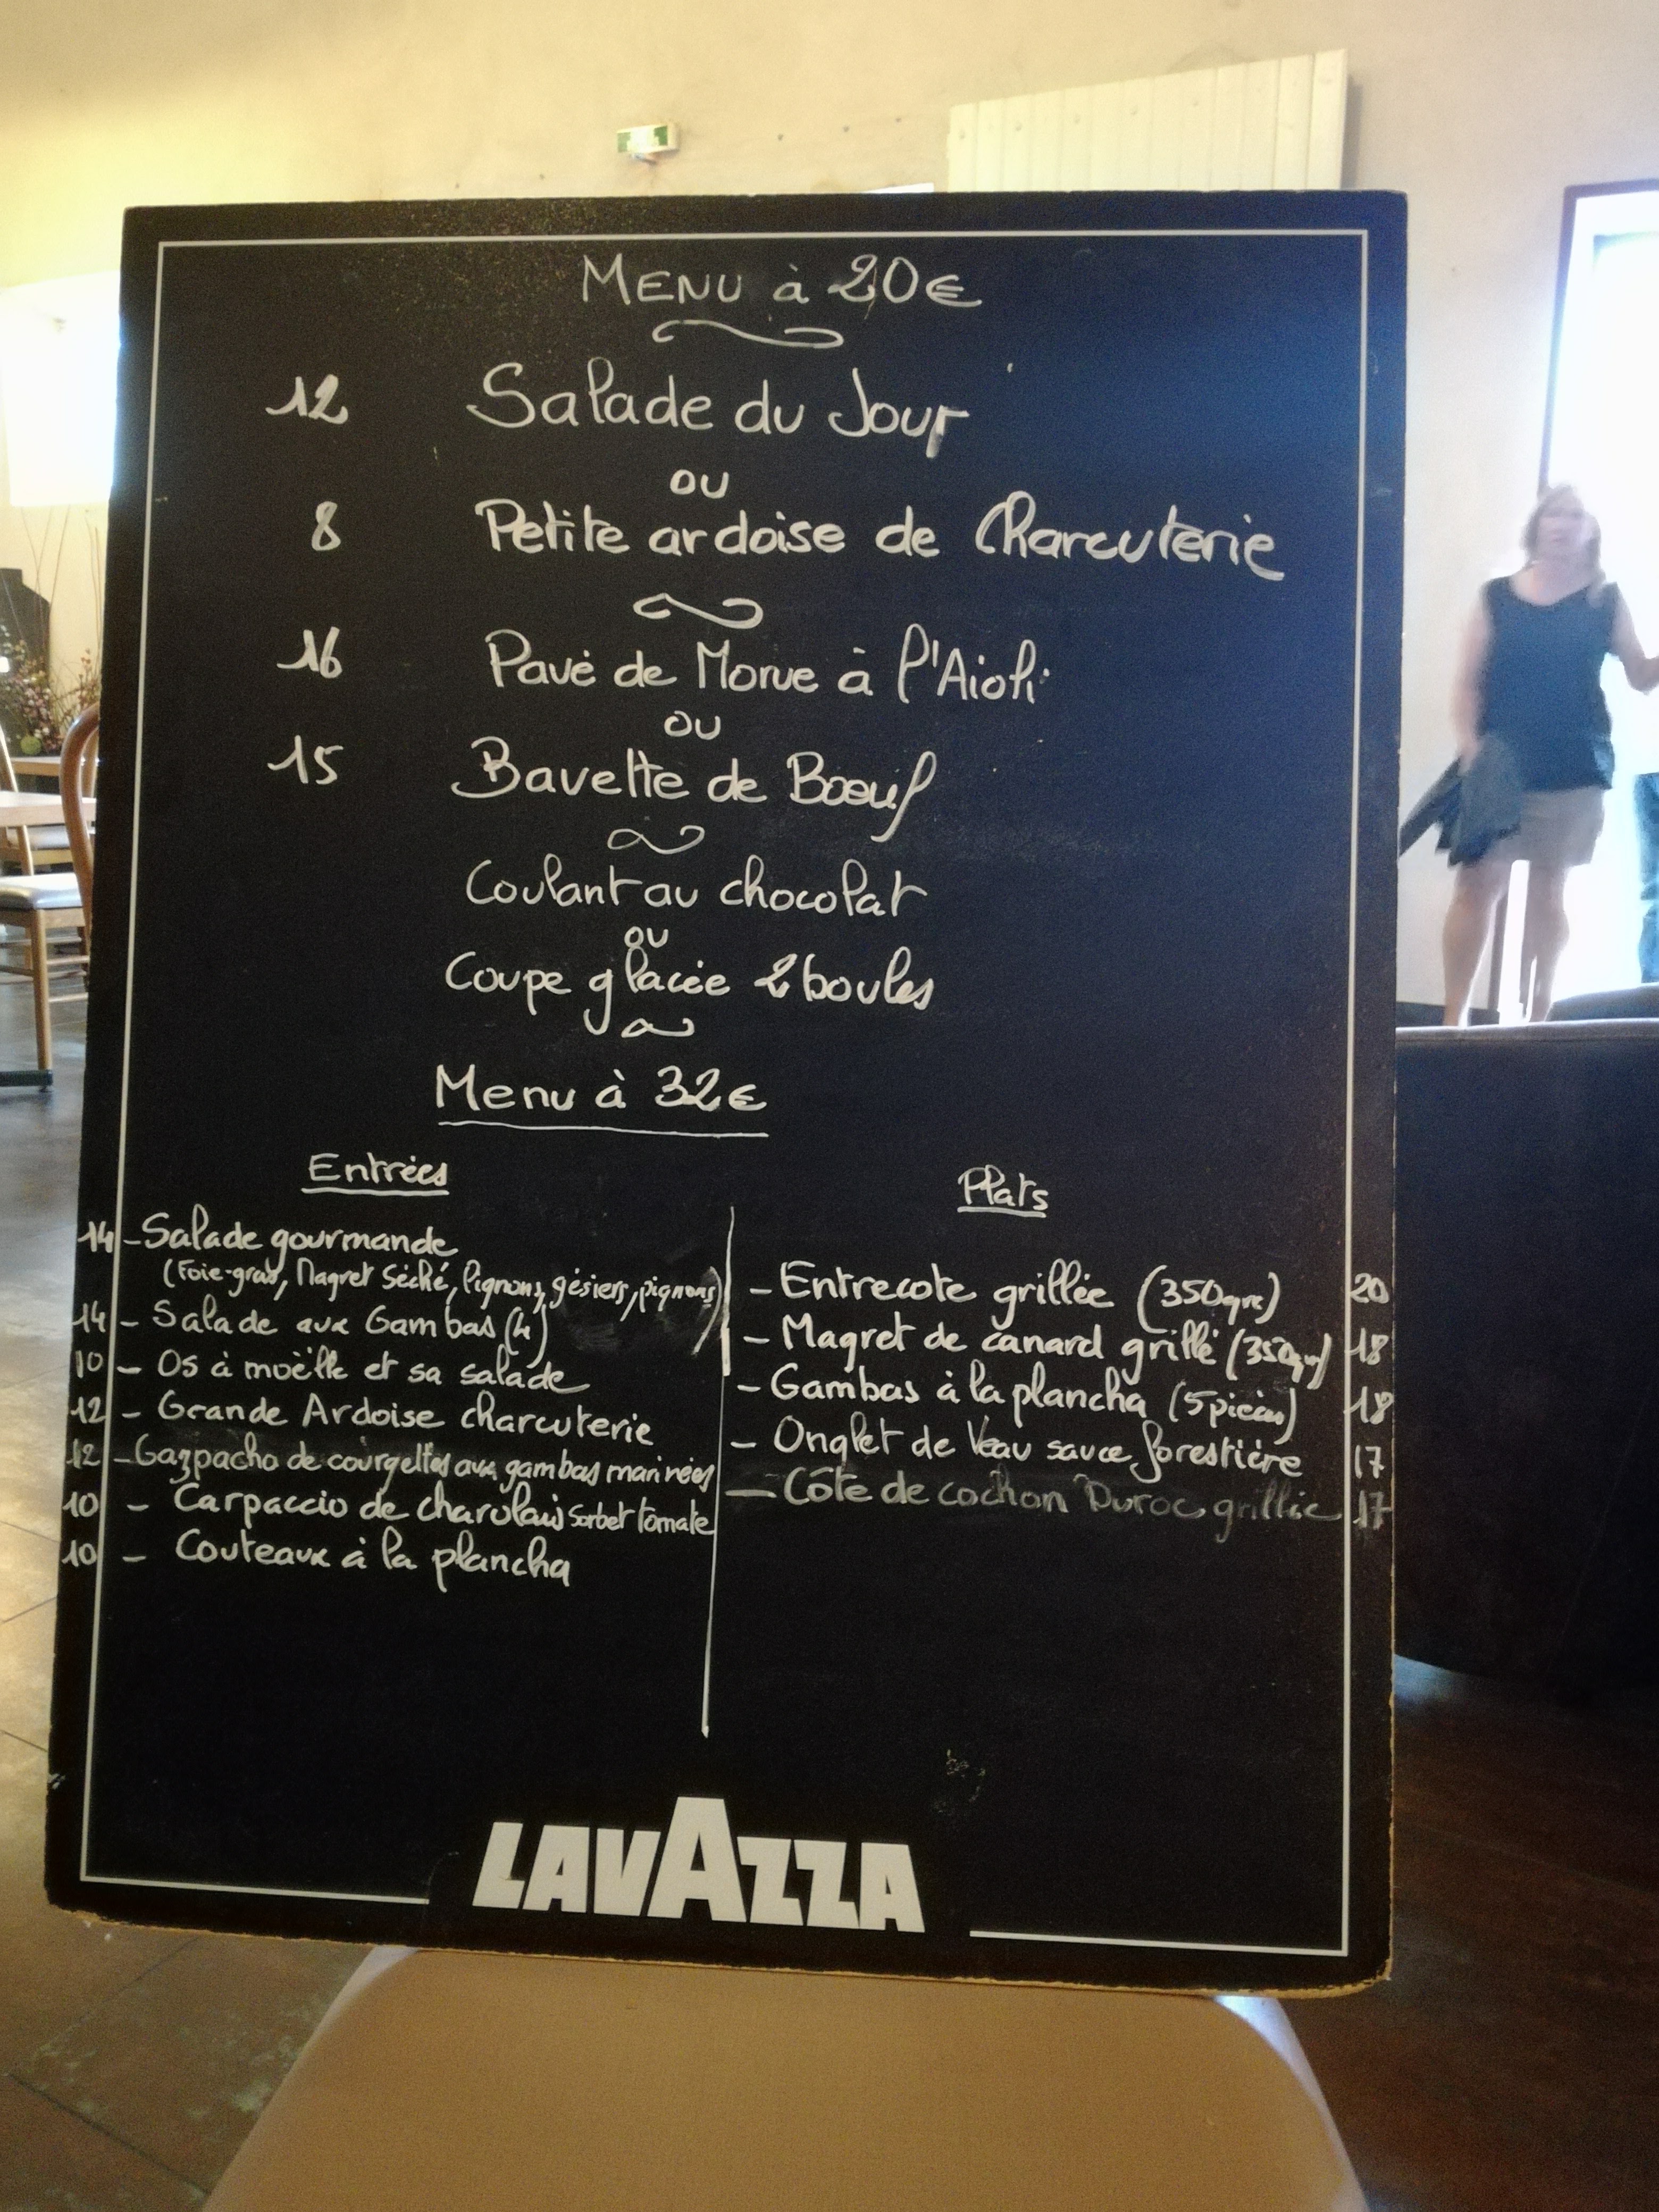 MENU à 20€
12 Salade du Jour
ou
8 Petite ardoise de Charcuterie
16 Pavé de Morue à l'Aioli
ou
15 Bavette de Boeuf
Coulant au chocolat
ou
Coupe glacée 2 boules
Menu à 32€
Entrées
14 - Salade gourmande
(Foie-gras, Magret Séché, Pignons, gésiers, pignons)
14 - Salade aux Gambas (4)
10 - Os à moëlle et sa salade
12 - Grande Ardoise charcuterie
12 - Gazpacho de courgettes aux gambas marinées
10 - Carpaccio de charolais sorbet tomate
10 - Couteaux à la plancha
Plats
- Entrecote grillée (350grs) 20
- Magret de canard grillé (350gr) 18
- Gambas à la plancha (5 pièces) 18
- Onglet de Veau sauce forestière 17
- Côte de cochon Duroc grillée 17
LAVAZZA